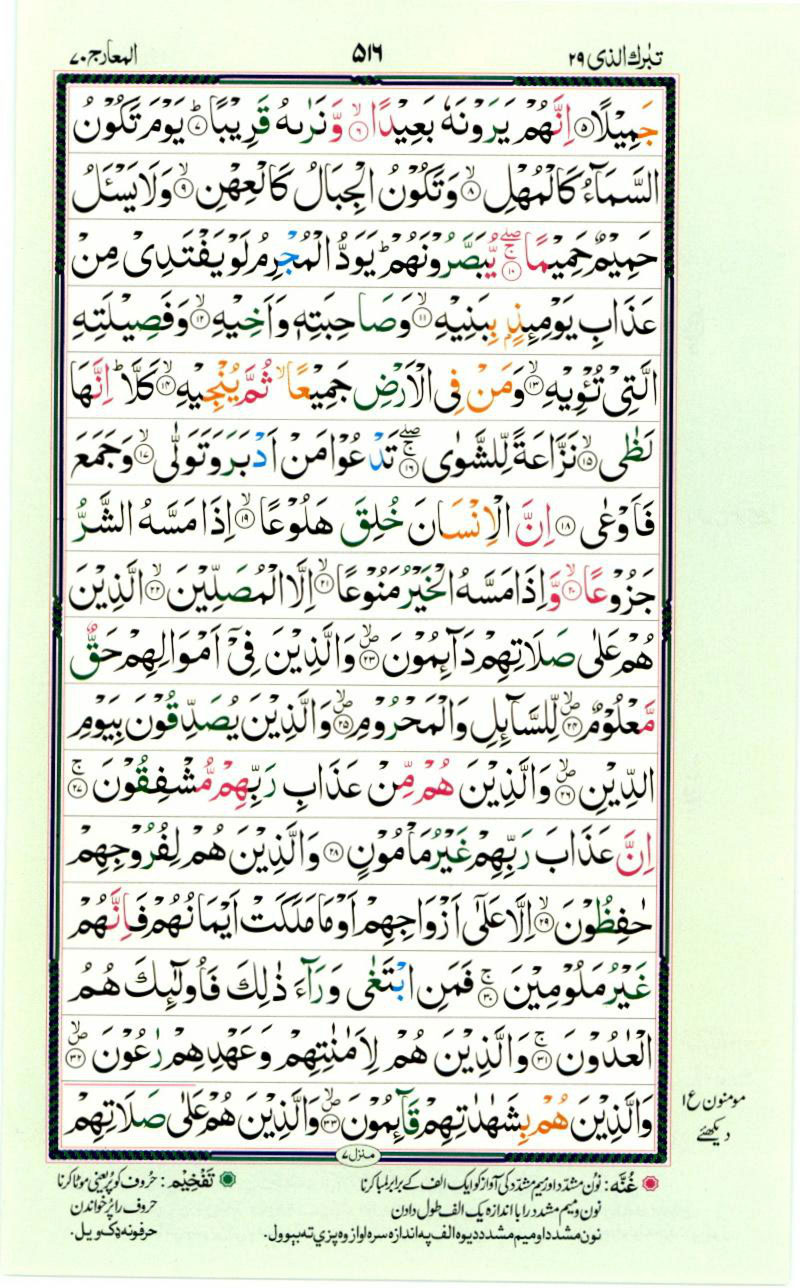 تبٰرك الذى ۲۹
۵۱۶
المعارج ۷۰
جَمِيْلًا ۵ اِنَّهُمْ يَرَوْنَهٗ بَعِيْدًا ۙ ۶ وَّنَرٰىهُ قَرِيْبًا ؕ ۷ يَوْمَ تَكُوْنُ
السَّمَآءُ كَالْمُهْلِ ۙ ۸ وَتَكُوْنُ الْجِبَالُ كَالْعِهْنِ ۙ ۹ وَلَا يَسْـَٔلُ
حَمِيْمٌ حَمِيْمًا ۚۖ ۱۰ يُّبَصَّرُوْنَهُمْ ؕ يَوَدُّ الْمُجْرِمُ لَوْ يَفْتَدِىْ مِنْ
عَذَابِ يَوْمِئِذٍۢ بِبَنِيْهِ ۙ ۱۱ وَصَاحِبَتِهٖ وَاَخِيْهِ ۙ ۱۲ وَفَصِيْلَتِهِ
الَّتِىْ تُـْٔوِيْهِ ۙ ۱۳ وَمَنْ فِى الْاَرْضِ جَمِيْعًا ۙ ثُمَّ يُنْجِيْهِ ۙ ۱۴ كَلَّا ؕ اِنَّهَا
لَظٰى ۙ ۱۵ نَزَّاعَةً لِّلشَّوٰى ۚۖ ۱۶ تَدْعُوْا مَنْ اَدْبَرَ وَتَوَلّٰى ۙ ۱۷ وَجَمَعَ
فَاَوْعٰى ۱۸ اِنَّ الْاِنْسَانَ خُلِقَ هَلُوْعًا ۙ ۱۹ اِذَا مَسَّهُ الشَّرُّ
جَزُوْعًا ۙ ۲۰ وَّاِذَا مَسَّهُ الْخَيْرُ مَنُوْعًا ۙ ۲۱ اِلَّا الْمُصَلِّيْنَ ۙ ۲۲ الَّذِيْنَ
هُمْ عَلٰى صَلَاتِهِمْ دَآئِمُوْنَ ۪ۙ ۲۳ وَالَّذِيْنَ فِىْۤ اَمْوَالِهِمْ حَقٌّ
مَّعْلُوْمٌ ۪ۙ ۲۴ لِّلسَّآئِلِ وَالْمَحْرُوْمِ ۪ۙ ۲۵ وَالَّذِيْنَ يُصَدِّقُوْنَ بِيَوْمِ
الدِّيْنِ ۪ۙ ۲۶ وَالَّذِيْنَ هُمْ مِّنْ عَذَابِ رَبِّهِمْ مُّشْفِقُوْنَ ۚ ۲۷
اِنَّ عَذَابَ رَبِّهِمْ غَيْرُ مَاْمُوْنٍ ۲۸ وَالَّذِيْنَ هُمْ لِفُرُوْجِهِمْ
حٰفِظُوْنَ ۙ ۲۹ اِلَّا عَلٰٓى اَزْوَاجِهِمْ اَوْ مَا مَلَكَتْ اَيْمَانُهُمْ فَاِنَّهُمْ
غَيْرُ مَلُوْمِيْنَ ۚ ۳۰ فَمَنِ ابْتَغٰى وَرَآءَ ذٰلِكَ فَاُولٰٓئِكَ هُمُ
الْعٰدُوْنَ ۚ ۳۱ وَالَّذِيْنَ هُمْ لِاَمٰنٰتِهِمْ وَعَهْدِهِمْ رٰعُوْنَ ۪ۙ ۳۲
وَالَّذِيْنَ هُمْ بِشَهٰدٰتِهِمْ قَآئِمُوْنَ ۪ۙ ۳۳ وَالَّذِيْنَ هُمْ عَلٰى صَلَاتِهِمْ
مومنون ع ۱
دیکھئے
منزل ۷
غُنَّه : نون مشدّد اور میم مشدّد کی آواز کو ایک الف کے برابر لمبا کرنا
نون ومیم مشدد را با اندازه یک الف طول دادن
نون مشدد او میم مشدد دیوه الف په اندازه سره اواز وه پزې ته بیوول.
تَفْخِيْم : حروف کو پُر یعنی موٹا کرنا
حروف را پُر خواندن
حرفونه ډک ویل.